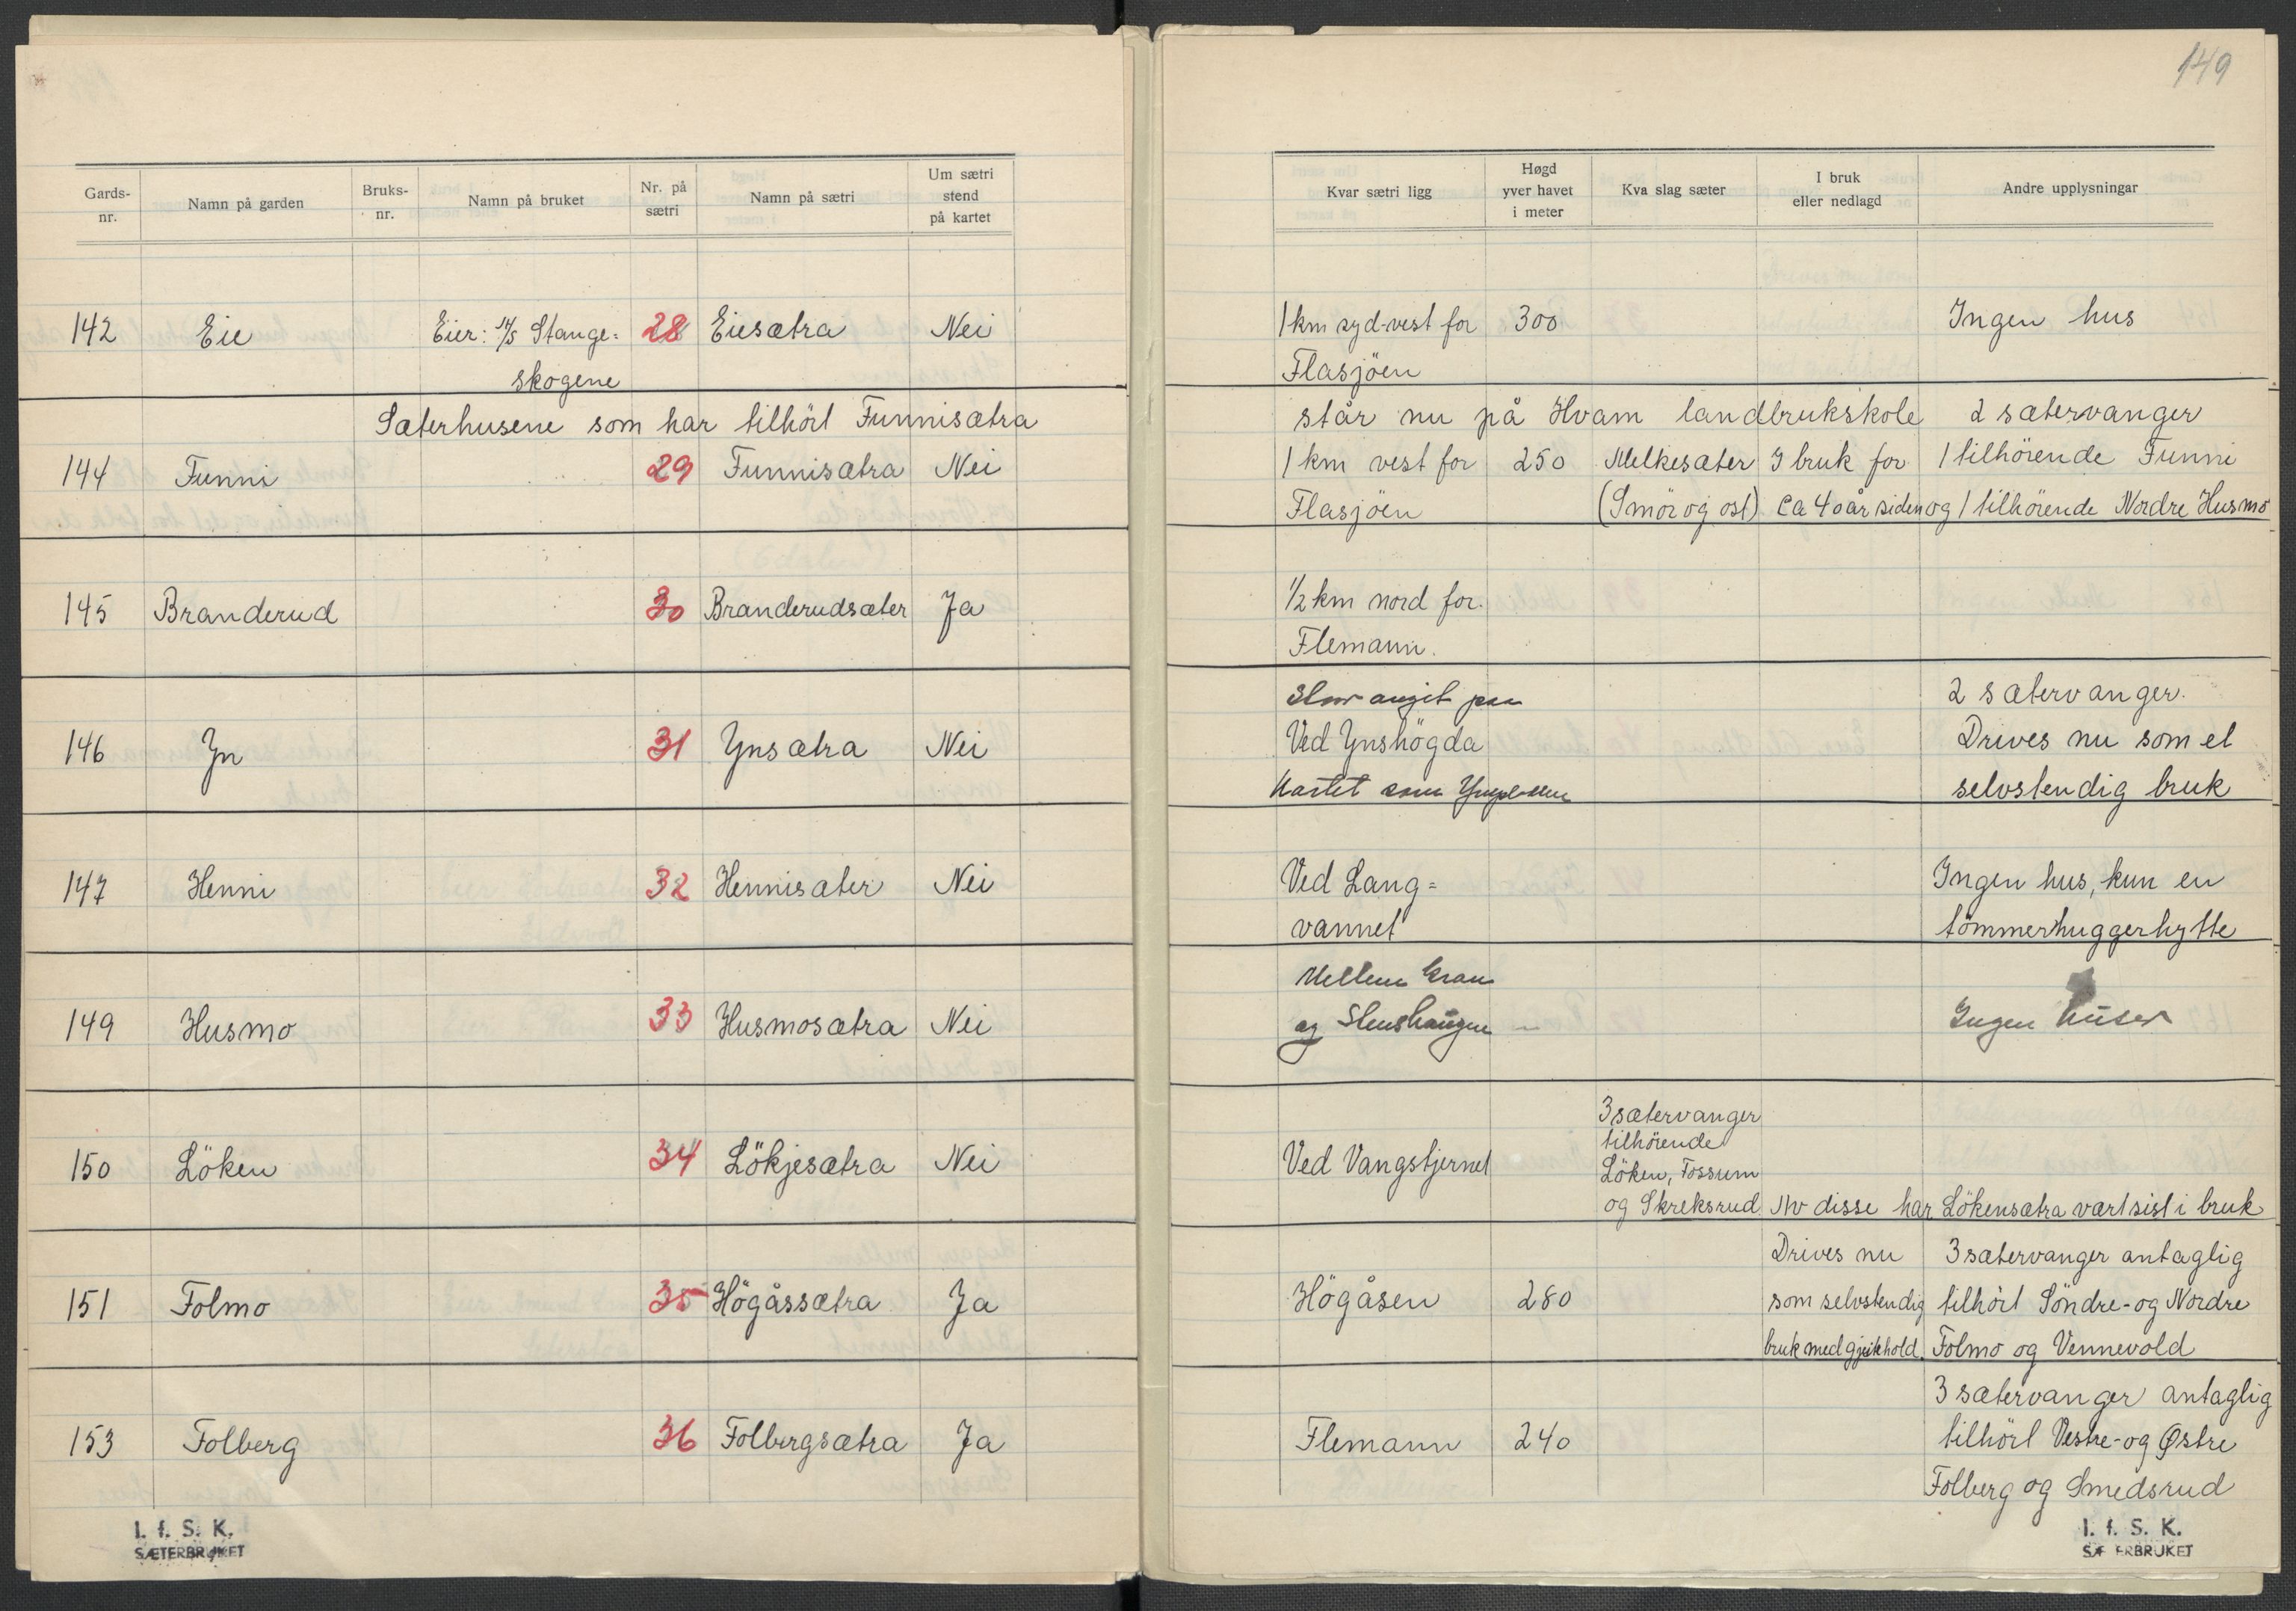 149
Gards-nr. Namn på garden Bruks-nr. Namn på bruket Nr. på sætri Namn på sætri Um sætri stend på kartet Kvar sætri ligg Høgd yver havet i meter Kva slag sæter I bruk eller nedlagd Andre upplysningar
142 Eie Eier: A/S Stange= 28 Eiesætra Nei 1 km syd-vest for 300 Ingen hus
skogene Flasjöen
Sæterhusene som har tilhört Funnisætra står nu på Hvam landbrukskole 2 sætervanger
144 Funni 29 Funnisætra Nei 1 km vest for 250 Melkesæter I bruk for 1 tilhörende Funni
Flasjöen (Smör og ost) ca 40 år siden og 1 tilhörende Nordre Husmo
145 Branderud 30 Branderudsæter Ja 1/2 km nord for
Flemann.
Star angit paa 2 sætervanger.
146 Yn 31 Ynsætra Nei Ved Ynshögda Drives nu som et
Kartet som selvstendig bruk
147 Henni 32 Hennisæter Nei Ved Lang= Ingen hus, kun en
vannet tömmerhuggerhytte
Mellem
149 Husmo 33 Husmosætra Nei og Ingen huser
3 sætervanger
tilhörende
150 Löken 34 Lökjesætra Nei Ved Vangstjernet Löken, Fossum
og Skreksrud Av disse har Lökensætra vært sist i bruk
Drives nu 3 sætervanger antaglig
151 Folmo 35 Högåssætra Ja Högåsen 280 som selvstendig tilhört Söndre- og Nordre
bruk med gjeithold. Folmo og Vennevold
3 sætervanger antaglig
153 Folberg 36 Folbergsætra Ja Flemann 240 tilhört Vestre- og Østre
Folberg og Smedsrud
I. f. S. K.
SÆTERBRUKET
I. f. S. K.
SÆTERBRUKET